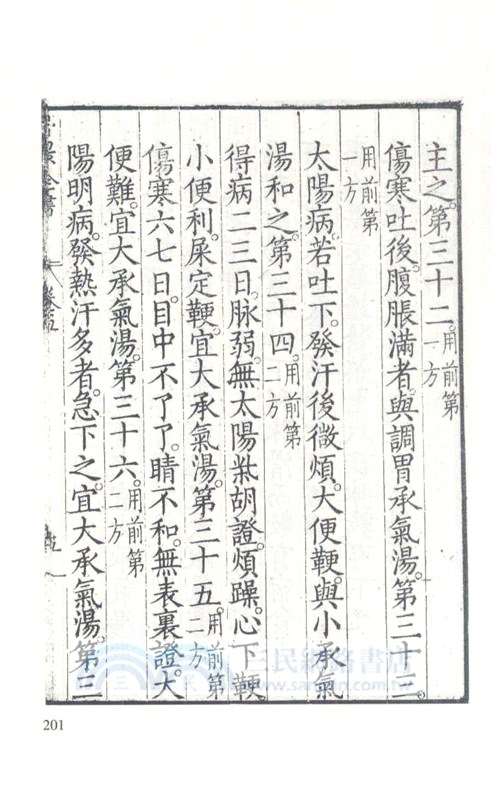 主之。第三十二。用前第一方
傷寒吐後。腹脹滿者。與調胃承氣湯。第三十三。
用前第一方
太陽病。若吐下。發汗後。微煩。大便鞕。與小承氣
湯和之。第三十四。用前第二方
得病二三日。脉弱。無太陽柴胡證。煩躁。心下鞕。
小便利。屎定鞕。宜大承氣湯。第三十五。用前第二方
傷寒六七日。目中不了了。睛不和。無表裏證。大
便難。宜大承氣湯。第三十六。用前第二方
陽明病。發熱汗多者。急下之。宜大承氣湯。第三
三民網路書店
www.sanmin.com.tw
201